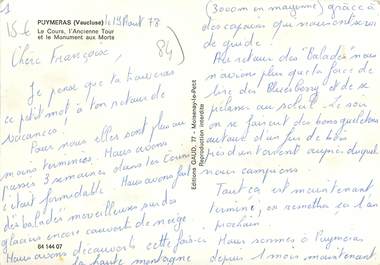 1
15€
84)
PUYMERAS (Vaucluse)
Le Cours, l'Ancienne Tour
et le Monument aux Morts
le 19 Août 78
Chère Françoise,
Je pense que tu trouveras
ce petit mot à ton retour de
vacances!
Pour nous elles sont plus ou
moins terminées. Nous avons
passés 3 semaines dans les
c'était formidable. Nous avons fait
des balades merveilleuses par des
glaciers encore couverts de neige
Nous avons découverts cette fois-ci
la haute montagne
04 144 07
Editions GAUD, 77 - Moisenay-le-Petit
Reproduction interdite
(3000m en moyenne) grâce à
des copains qui nous ont servi
de guide.
Au retour des "Balades" nous
n'avions plus que la force de
lire des Blueberry et de se
prélasser au soleil. Le soir
on se faisait des bons gueuletons
autour d'un feu de bois
près d'un torrent auprès duquel
nous campions.
Tout ça est maintenant
terminé, on remettra ça l'an
prochain
Nous sommes à Puymeras
depuis 1 mois maintenant.